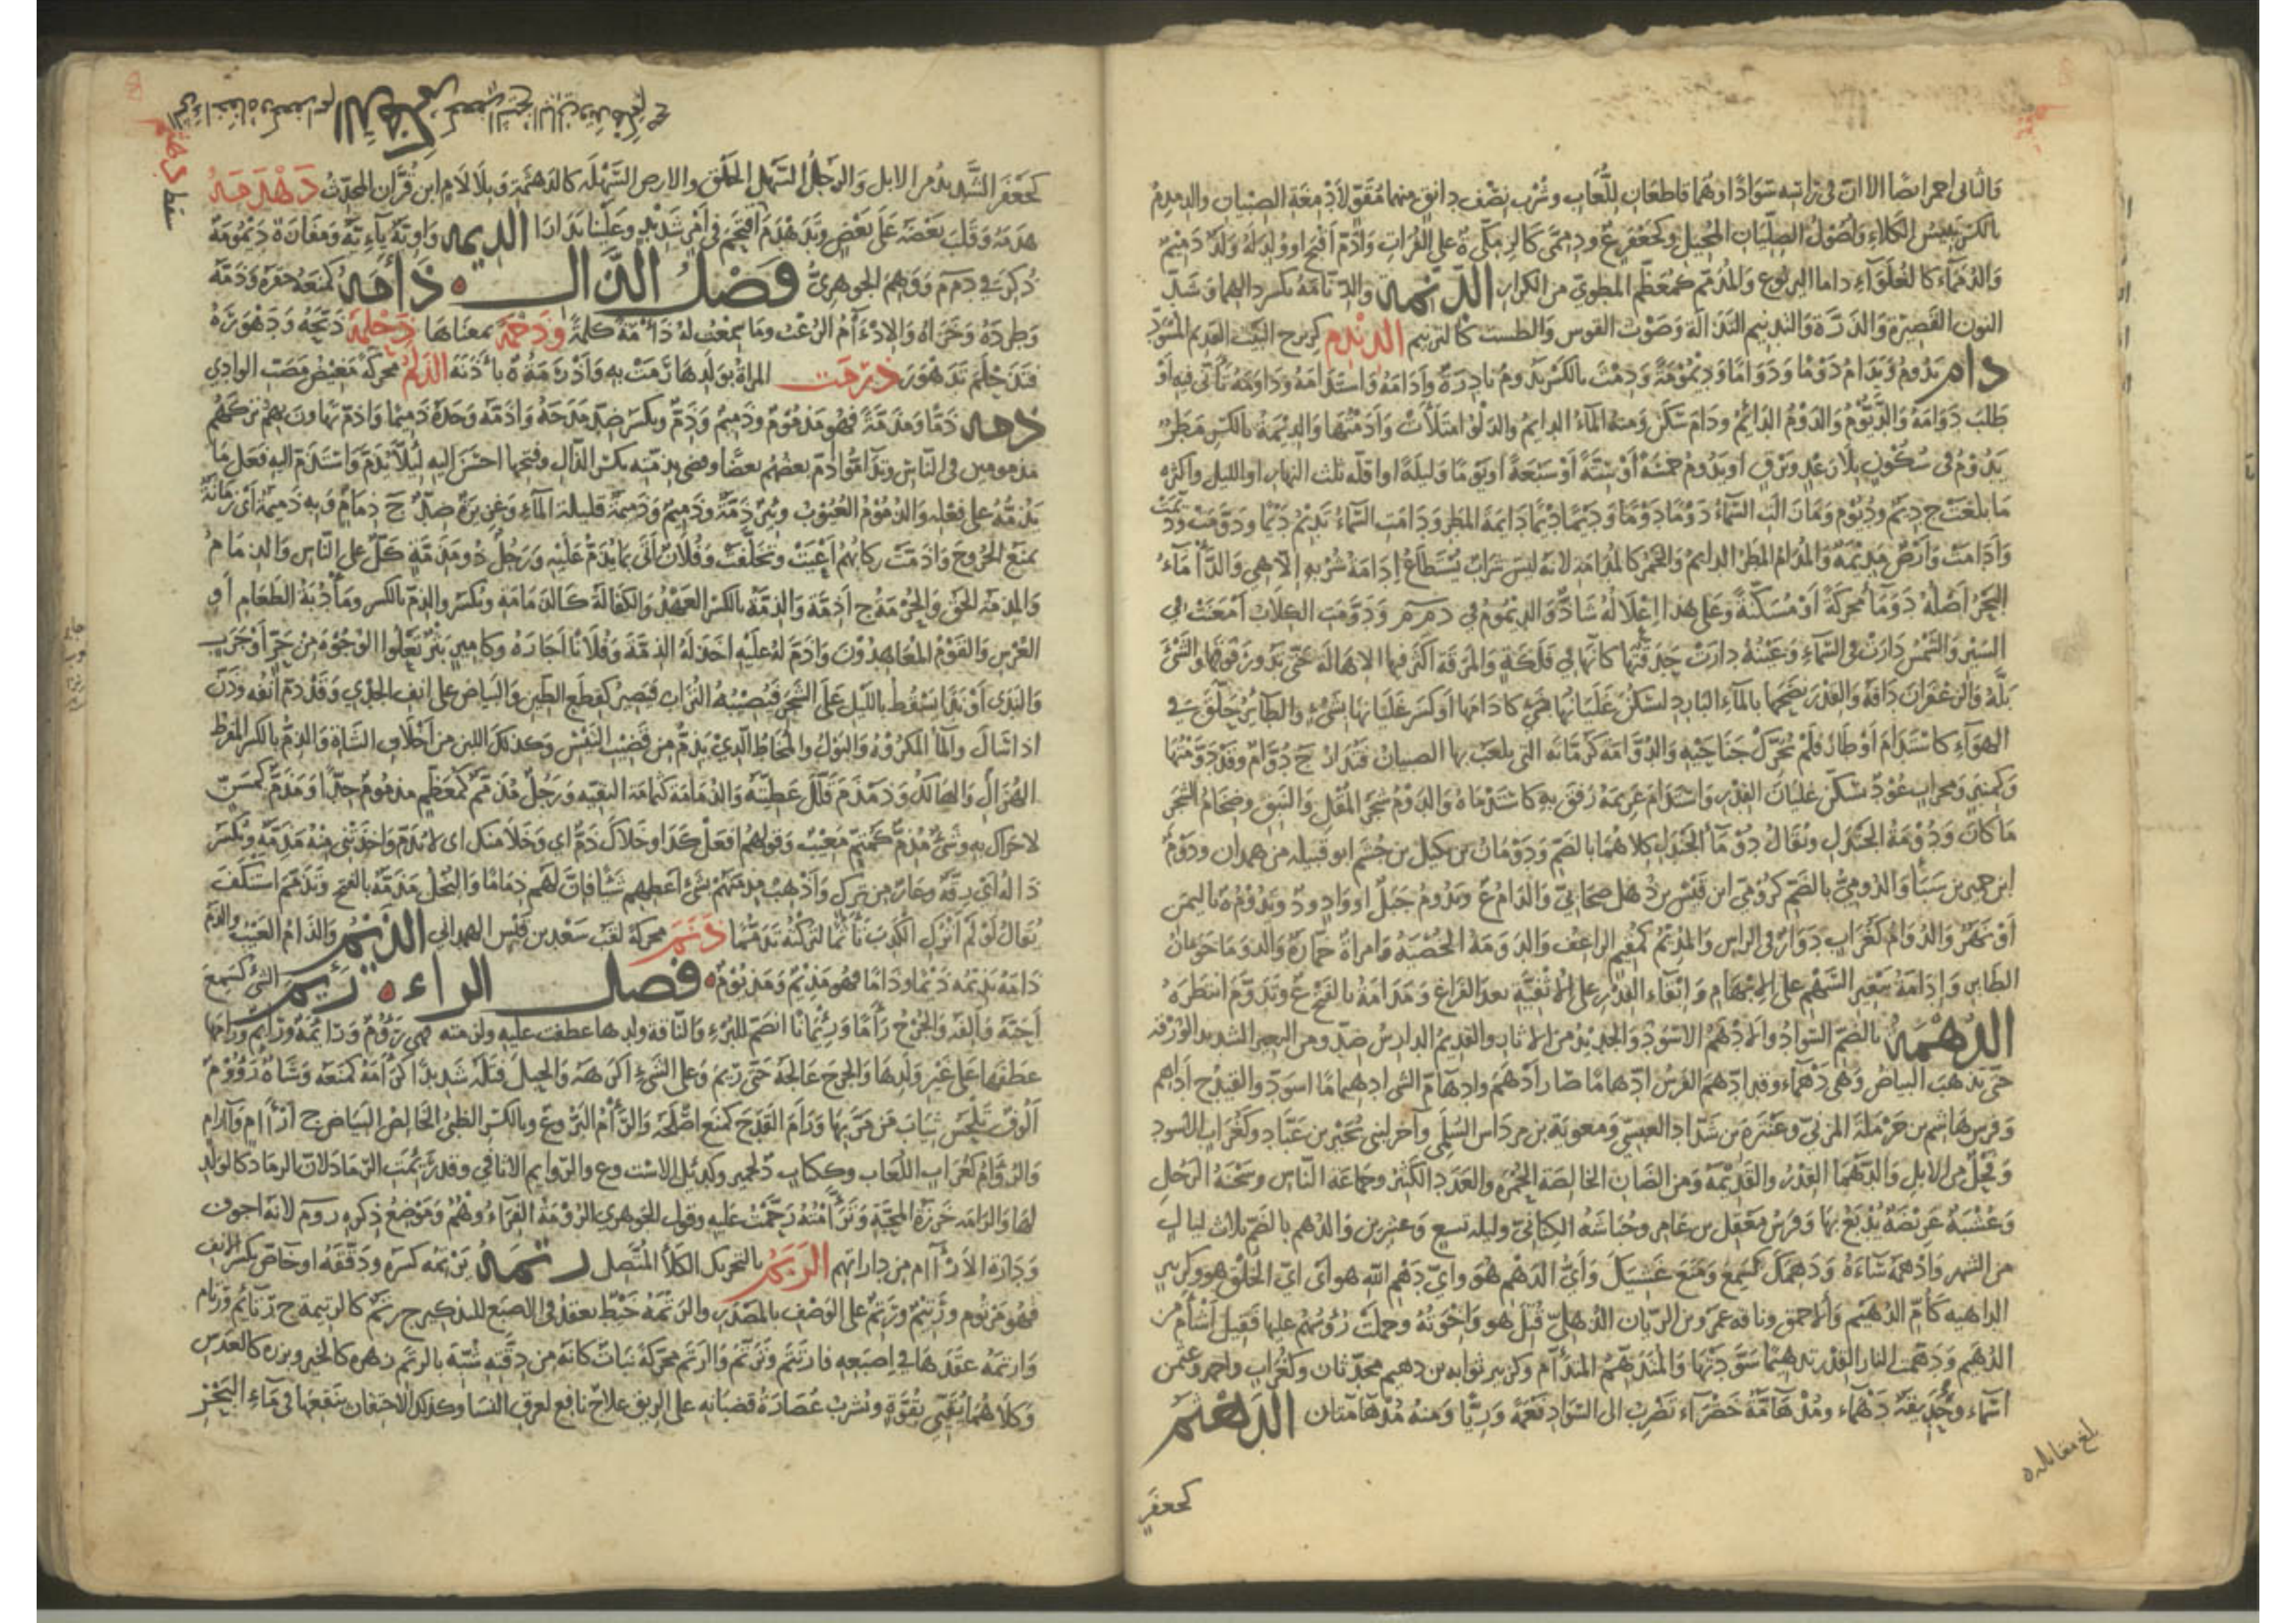 والثانى احمر ايضا الا ان فى راسه سوادا وهما قاطعان للعاب وشرب نصف دانق منهما مقو لادمغة الصبيان والدمدم
بالكسر يبيس الكلاء واصول الصليان المحيل وكجعفر ع ودممى كالزمكى ة على الفرات وادم اقبح او ولد له ولد دميم
والدمماء كالغلواء داما اليربوع والمدمم كمعظم المطوى من الكرار الدنمة والدنامة بكسر دالهما وشد
النون القصيرة والذرة والتدنيم النذالة وصوت القوس والطست كالترنيم الدندم كزبرج النبت القديم المسود
دام يدوم ويدام دوما ودواما وديمومة ودمت بالكسر يدوم نادرة وادامه واستدامه وداومه تأنى فيه او
طلب دوامه والديوم والدوم الدائم ودام سكن ومنه الماء الدايم والدلو امتلأت وادمتها والديمة بالكسر مطر
يدوم فى سكون بلا رعد وبرق او يدوم خمسة او ستة او سبعة او يوما وليلة او اقله ثلث النهار او الليل واكثره
ما بلغت ج ديم وديوم ومازالت السماء دوما دوما وديما ديما دايمة المطر ودامت السماء تديم ديما ودومت وديمت
وادامت وارض مديمة والمدام المطر الدايم والخمر كالمدامة لانه ليس شراب يستطاع ادامة شربه الا هى والدأماء
البحر اصله دوماء محركة او مسكنة وعلى هذا اعلاله شاذ والديموم فى دمم ودومت الكلاب امعنت فى
السير والشمس دارت فى السماء وعينه دارت حدقتها كانها فى فلكة والمرقة اكثر فيها الاهالة حتى تدور فوقها والشىء
بله والزعفران دافه والقدر نضحها بالماء البارد ليسكن غليانها كادامها او كسر غليانها بشىء والطائر حلق فى
الهواء كاستدام او طار فلم يحرك جناحيه والدوامة كرمانة التى يلعب بها الصبيان فتدار ج دوام وقد دومتها
وكمنبر ومحراب عود يسكن غليان القدر واستدام غريمه رفق به كاستدماه والدوم شجر المقل والنبق وضخام الشجر
ما كان ودومة الجندل ويقال دوماء الجندل كلاهما بالضم ودومان بن بكيل بن جشم ابو قبيلة من همدان ودوم
ابن حمير بن سبأ والدومى بالضم كرومى ابن قيس بن ذهل صحابى والدام ع ويدوم جبل او واد وذو يدوم ة باليمن
او نهر والدوام كغراب دوار فى الراس والمديم كمقيم الراعف والدومة الخصية وامرأة خمارة والدوم احومان
الطائر وادامة تنقير السهم على الابهام وابقاء القدر على الاثفية بعد الفراغ ومدامة بالفتح ع وتدوم انتظره
الدهمة بالضم السواد والادهم الاسود والجديد من الاثار والقديم الدارس ضد ومن البعير الشديد الورقة
حتى يذهب البياض وهى دهماء وقد ادهم الفرس ادهماما صار ادهم وادهام الشى ادهيماما اسود والقيد ج اداهم
وفرس هاشم بن حرملة المرى وعنترة بن شداد العبسى ومعوية بن مرداس السلمى وآخر لبنى بجير بن عباد وكغراب الاسود
وفحل من الابل والدهماء القدر والقديمة ومن الضان الخالصة الحمرة والعدد الكثير وجماعة الناس وسحنة الرجل
وعشبة عريضة يدبغ بها وفرس معقل بن عامر وحباشة الكنانى وليلة تسع وعشرين والدهم بالضم ثلاث ليال
من الشهر وادهمه ساءه ودهمك كسمع ومنع غشيك واى الدهم هو واى دهم الله هو اى اى الخلق هو وكزبير
الداهية كأم الدهيم والاحمق وناقة عمرو بن الريان الذهلى قتل هو واخوته وحملت رؤسهم عليها فقيل اشأم من
الدهيم ودهمت النار القدر تدهيما سودتها والمتدهم المتدأم وكزبير ثوابة بن دهيم محدثان وكغراب واحمد وعثمن
اسماء وحديقة دهماء ومدهامة خضراء تضرب الى السواد نعمة وريا ومنه مدهامتان الدهثم
كجعفر
بلغ مقابلة
كجعفر الشديد من الابل والرجل السهل الخلق والارض السهلة كالدهثمة وبلا لام ابن قران المحدث دهدمه
هدمه وقلب بعضه على بعض وتدهدم اقتحم فى امر شديد وعلينا بدارا الديمة واوية يائية ومفازة ديمومة
ذكرت فى دمم ووهم الجوهرى فصل الذال ذامه كمنعه حقره وذمه
وطرده وخزاه والاذءام الرعب وما سمعت له ذأمة كلمة وذحمة بمعناها ذحلمه ذبحه ودهوره
فتذحلم تدهور ذرمت المرأة بولدها رمت به واذرمة ة باذنة الذلم محركة مغيض مصب الوادى
ذمه ذما ومذمة فهو مذموم وذميم وذم ويكسر ضد مدحه واذمه وجده ذميما واذم تهاون بهم تركهم
مذمومين فى الناس وتذاموا ذم بعضهم بعضا وقضى مذمته بكسر الذال وفتحها احسن اليه ليلا يذم واستذم اليه فعل ما
يذمه على فعله والذموم العيوب وبئر ذمة وذميم وذميمة قليلة الماء وغزيرة ضد ج ذمام وبه ذميمة اى زمانة
تمنع الخروج واذمت ركابهم اعيت وتخلفت وفلان اتى بما يذم عليه ورجل ذو مذمة كل على الناس والذمام
والمذمة الحق والحرمة ج اذمة والذمة بالكسر العهد والكفالة كالذمامة ويكسر والذم بالكسر ومأدبة الطعام او
العرس والقوم المعاهدون واذم له عليه اخذ له الذمة وفلانا اجاره وكامير بثر يعلوا الوجوه من حر او جرب
والندى او ندى يسقط بالليل على الشجر فيصيبه التراب فيصير كقطع الطين والبياض على انف الجدى وقد ذم انفه وذن
اذا سال والماء المكروه والبول والمخاط الذى يذم من قضيب التيس وكذلك اللبن من اخلاف الشاة والذم بالكسر المفرط
الهزال والهالك وذمذم قلل عطيته والذمامة كثمامة البقية ورجل مذمم كمعظم مذموم جدا ومذم كمسن
لا حراك به وشىء مذم كمتم معيب وقولهم افعل كذا وخلاك ذم اى وخلا منك اى لا تذم واخذتنى منه مذمة ويكسر
ذاله اى رقة وعار من ترك واذهب مذمتهم بشىء اعطهم شيئا فان لهم ذماما والبخل مذمة بالفتح وتذمم استنكف
يقال لو لم اترك الكذب تأثما لتركته تذمما ذنم محركة لقب سعد بن قيس الهمدانى الذيم والذام العيب والذم
ذامه يذيمه ذيما وذاما فهو مذيم ومذيوم فصل الراء رئم الشىء كسمع
احبه والفه والجرح رأما ورئمانا انضم للبرء والناقة ولدها عطفت عليه ولزمته فهى رؤوم ورائمة ورائم وارأمها
عطفها على غير ولدها والجرح عالجه حتى رئم وعلى الشىء اكرهه والحبل فتله شديدا كرأمه كمنعه وشاة رؤوم
الوف تلحس ثياب من مر بها ورأم القدح كمنع اصلحه والرأم البو وع وبالكسر الظبى الخالص البياض ج ارآم وآرام
والرؤام كغراب اللعاب وككتاب د لحمير وكدئل الاست وع والروايم الاثافى وقد رئمت الرماد لان الرماد كالولد
لها والرامة خرزة المحبة وترأمته ترحمت عليه وقول الجوهرى الرومة الغراء وهم وموضع ذكره روم لانه اجوف
ودارة الارآم من داراتهم الربم بالتحريك الكلأ المتصل رتمه يرتمه كسره ودققه او خاص بكسر الانف
فهو مرتوم ورتيم ورتم على الوصف بالمصدر والرتمة خيط يعقد فى الاصبع للتذكير ج رتم كالرتيمة ج رتائم ورتام
وارتمه عقدها فى اصبعه فارتتم وترتم والرتم محركة نبات كانه من دقته شبه بالرتم زهره كالخيرى وبزره كالعدس
وكلاهما يقيى بقوة وشرب عصارة قضبانه على الريق علاج نافع لعرق النسا وكذلك الاحتقان بنقيعها فى ماء البحر